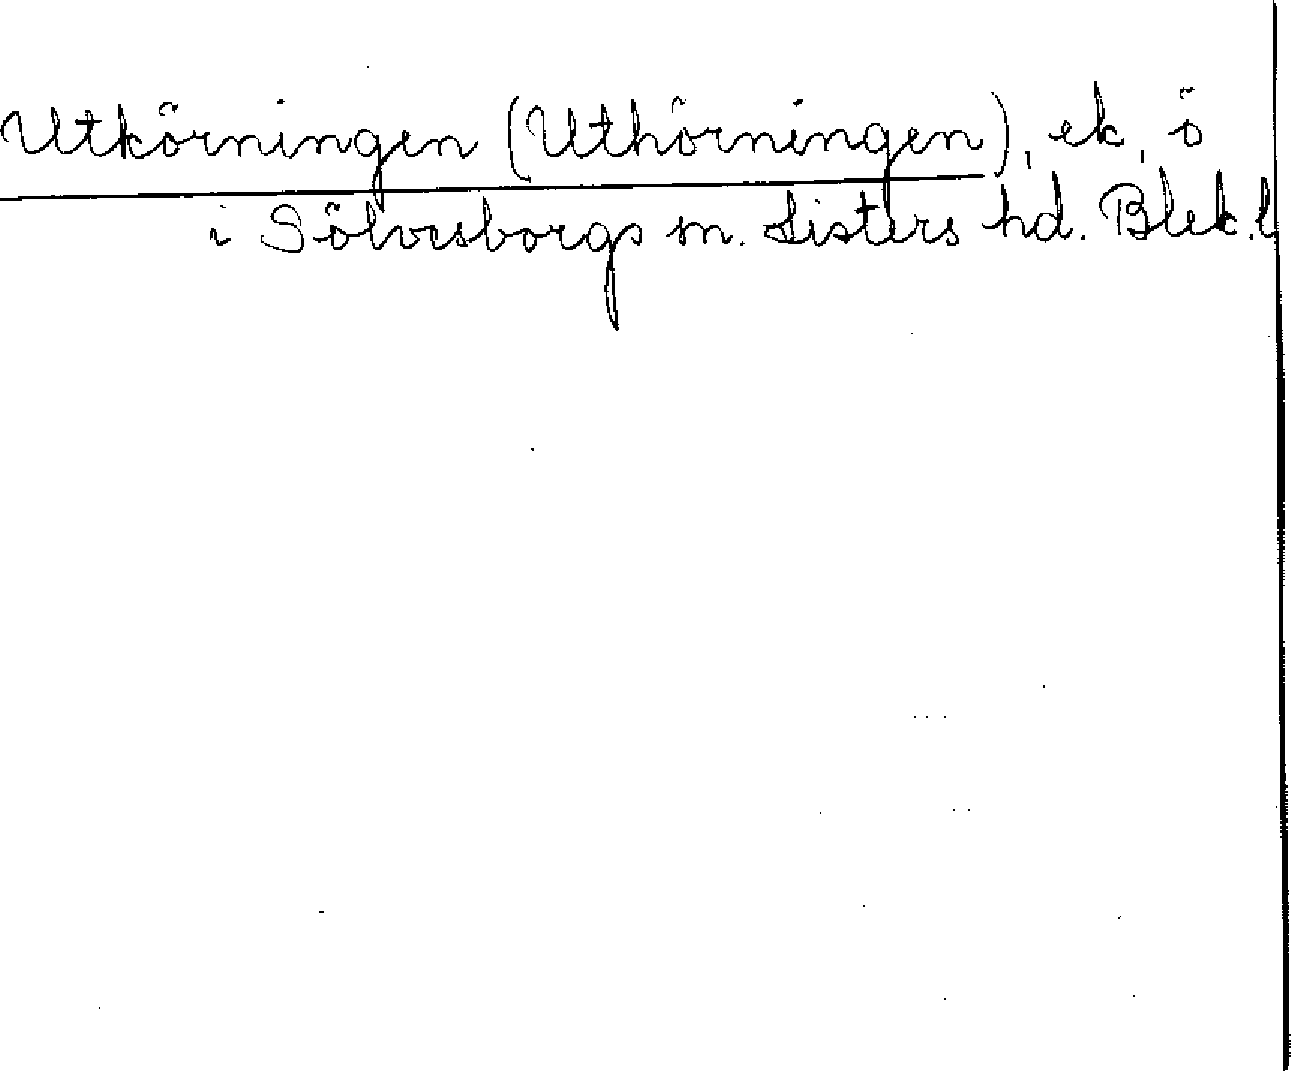 Utkörningen (Uthörningen), ek, ö
i Sölvesborgs sn. Listers hd. Blek.l